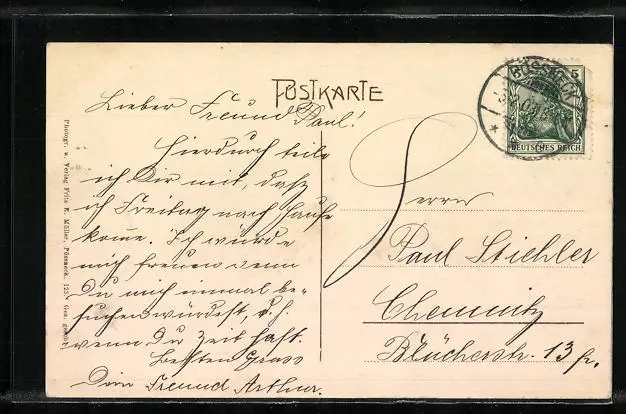 POSTKARTE
Lieber Freund Paul!
Hierdurch teile
ich Dir mit, daß
ich Freitag nach Hause
komme. Ich würde
mich freuen wenn
Du mich einmal be-
suchen würdest, d.h.
wenn Du Zeit hast.
Besten Gruss
Dein Freund Arthur.
Herrn
Paul Stiehler
Chemnitz
Blücherstr. 13
Photogr. u. Verlag Fritz E. Müller, Pössneck. 123. Ges. gesch.
PÖSSNECK
5
DEUTSCHES REICH